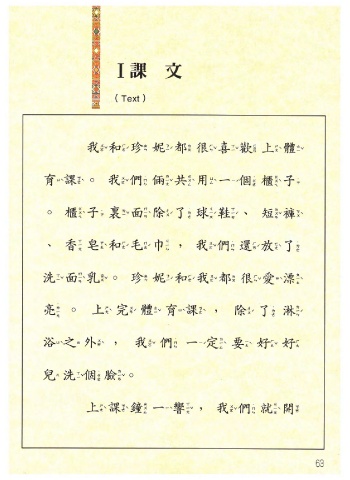 I 課 文
(Text)
我和珍妮都很喜歡上體
育課。我們倆共用一個櫃子
。櫃子裏面除了球鞋、短褲
、香皂和毛巾,我們還放了
洗面乳。珍妮和我都很愛漂
亮。上完體育課,除了淋
浴之外,我們一定要好好
兒洗個臉。
上課鐘一響,我們就開
63